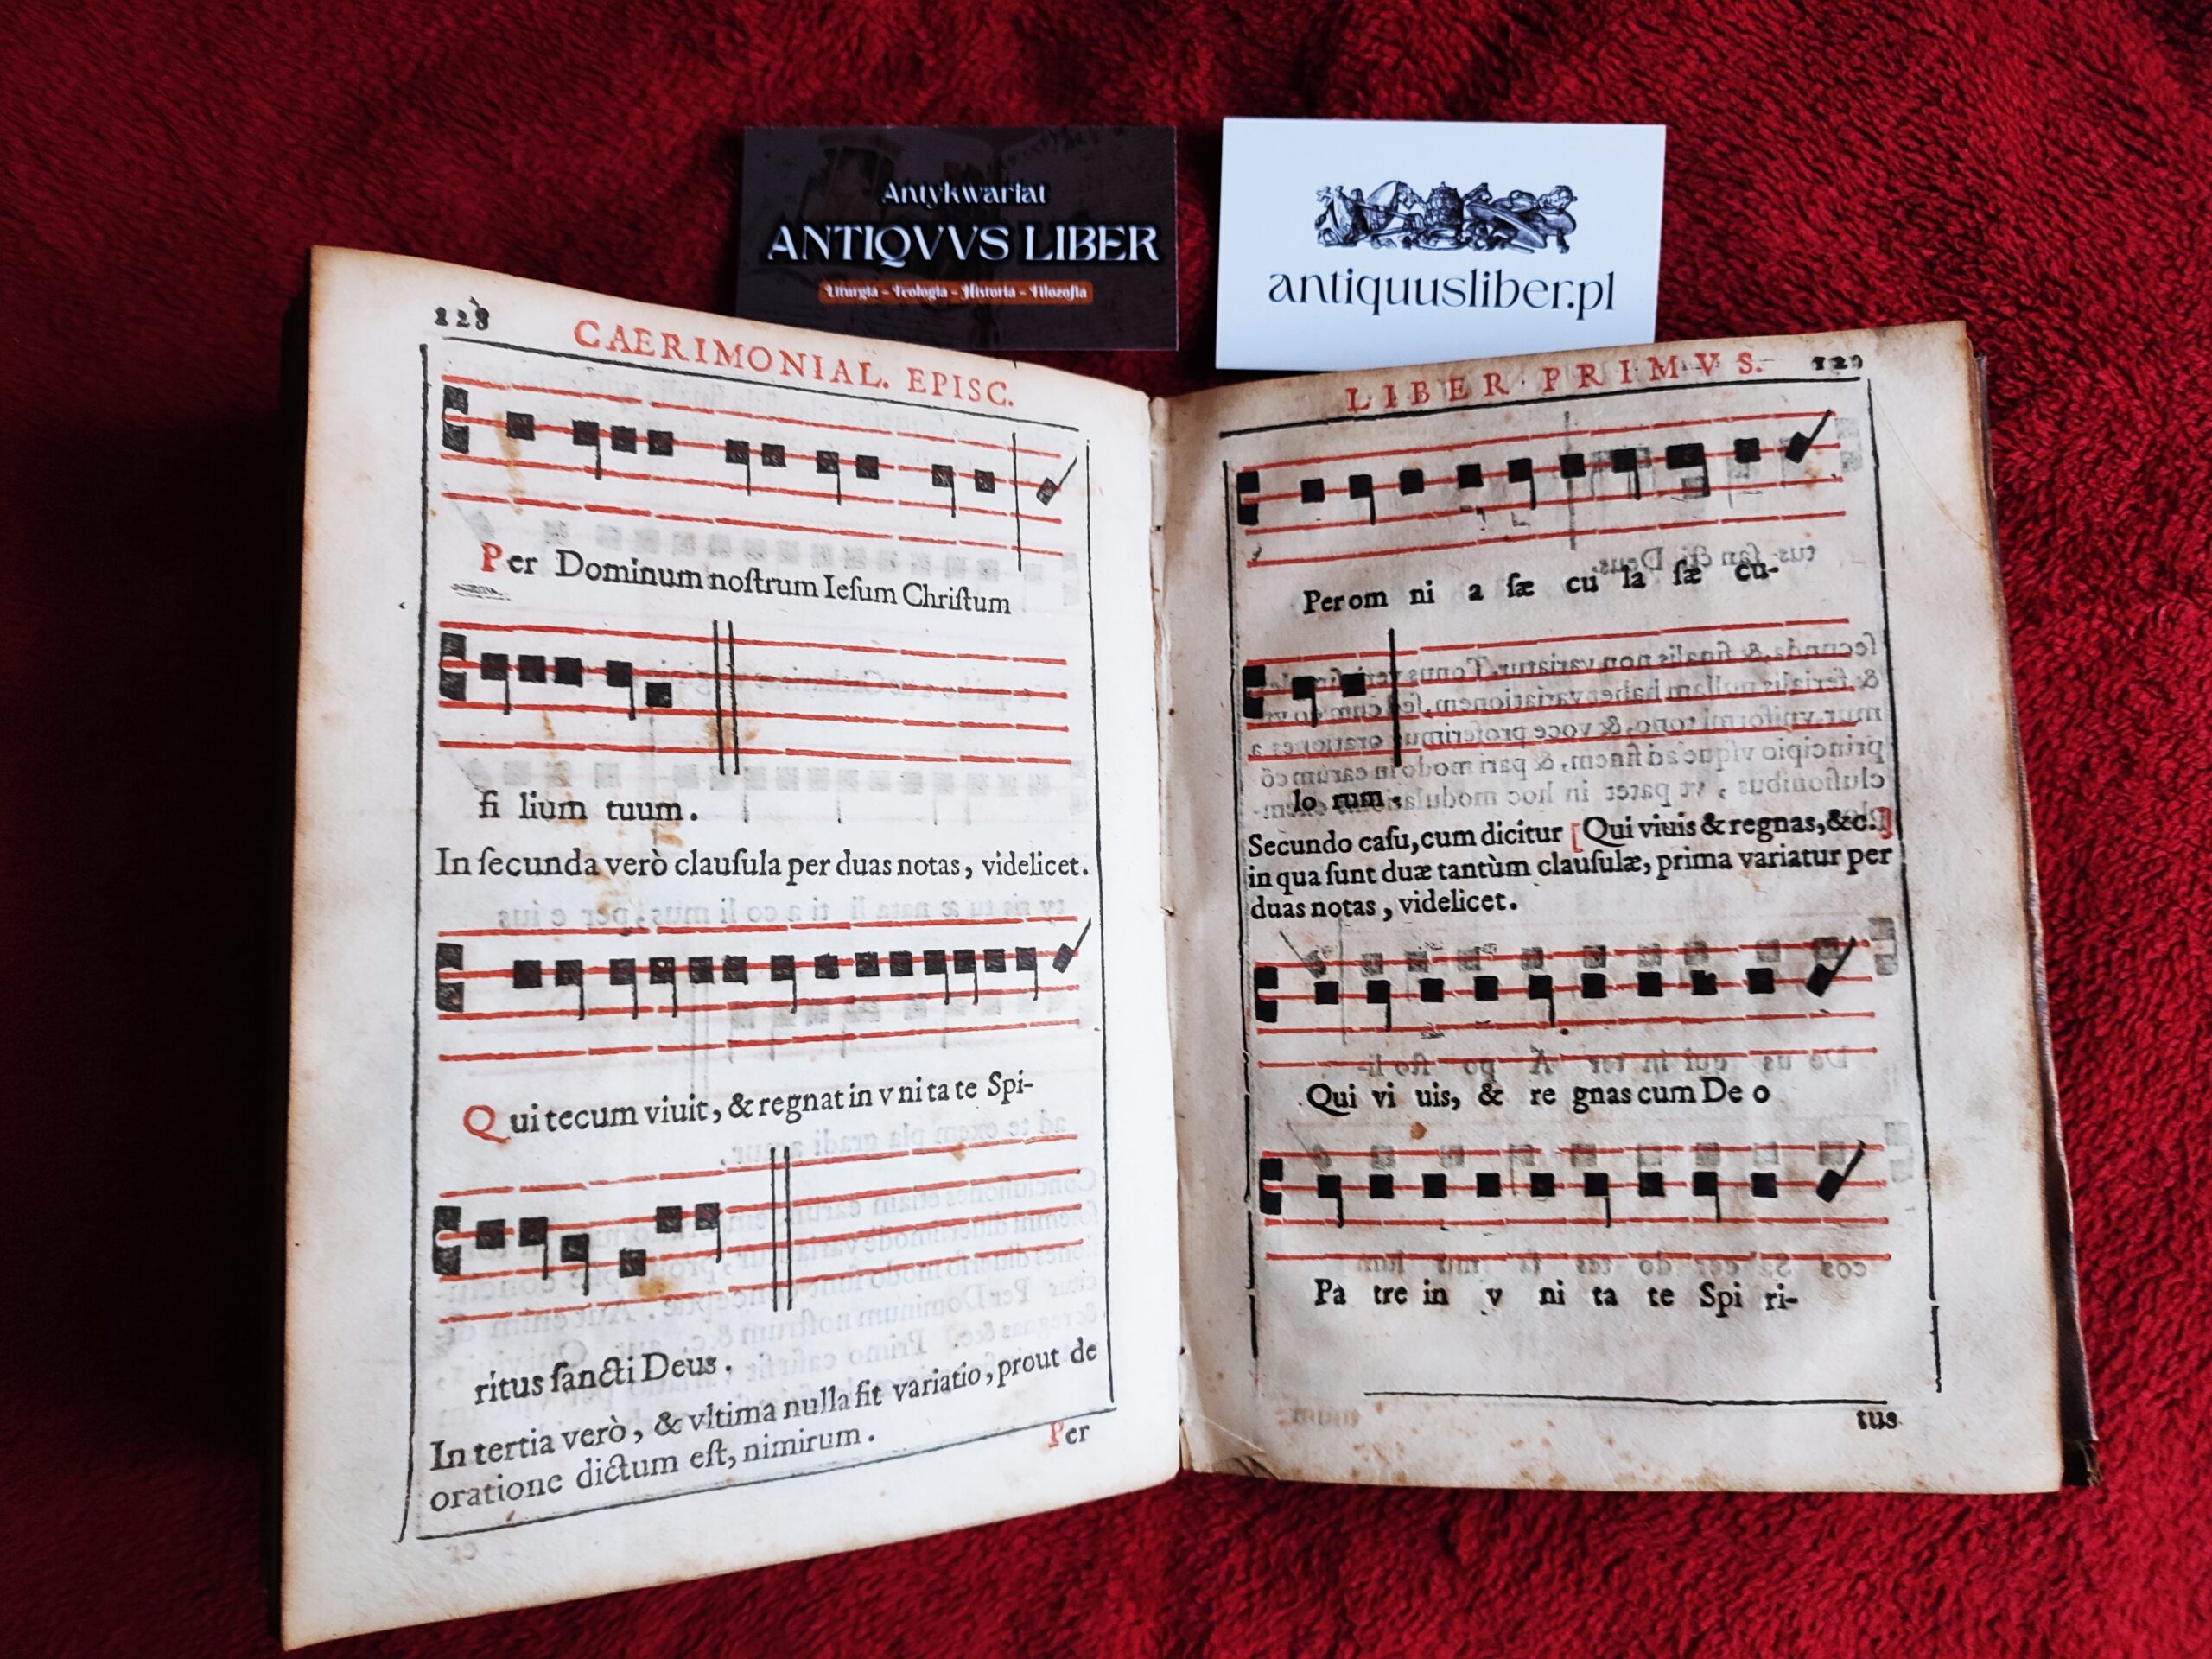 Antykwariat
ANTIQVVS LIBER
Liturgia - Teologia - Historia - Filozofia
antiquusliber.pl
128 CAERIMONIAL. EPISC.
Per Dominum noſtrum Ieſum Chriſtum
fi lium tuum.
In ſecunda verò clauſula per duas notas, videlicet.
Qui tecum viuit, & regnat in v ni ta te Spi-
ritus ſancti Deus.
In tertia verò, & vltima nulla fit variatio, prout de
oratione dictum eſt, nimirum.
Per
LIBER PRIMVS. 129
Per om ni a ſæ cu la ſæ cu-
lo rum.
Secundo caſu, cum dicitur [Qui viuis & regnas, &c.]
in qua ſunt duæ tantùm clauſulæ, prima variatur per
duas notas, videlicet.
Qui vi uis, & re gnas cum De o
Pa tre in v ni ta te Spi ri-
tus